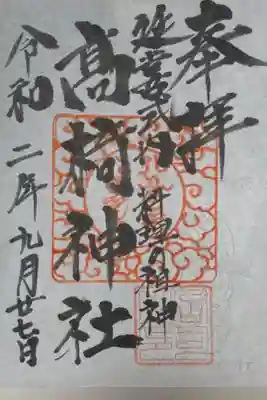 奉拝
延喜式内
料理の祖神
髙椅神社
令和二年九月廿七日